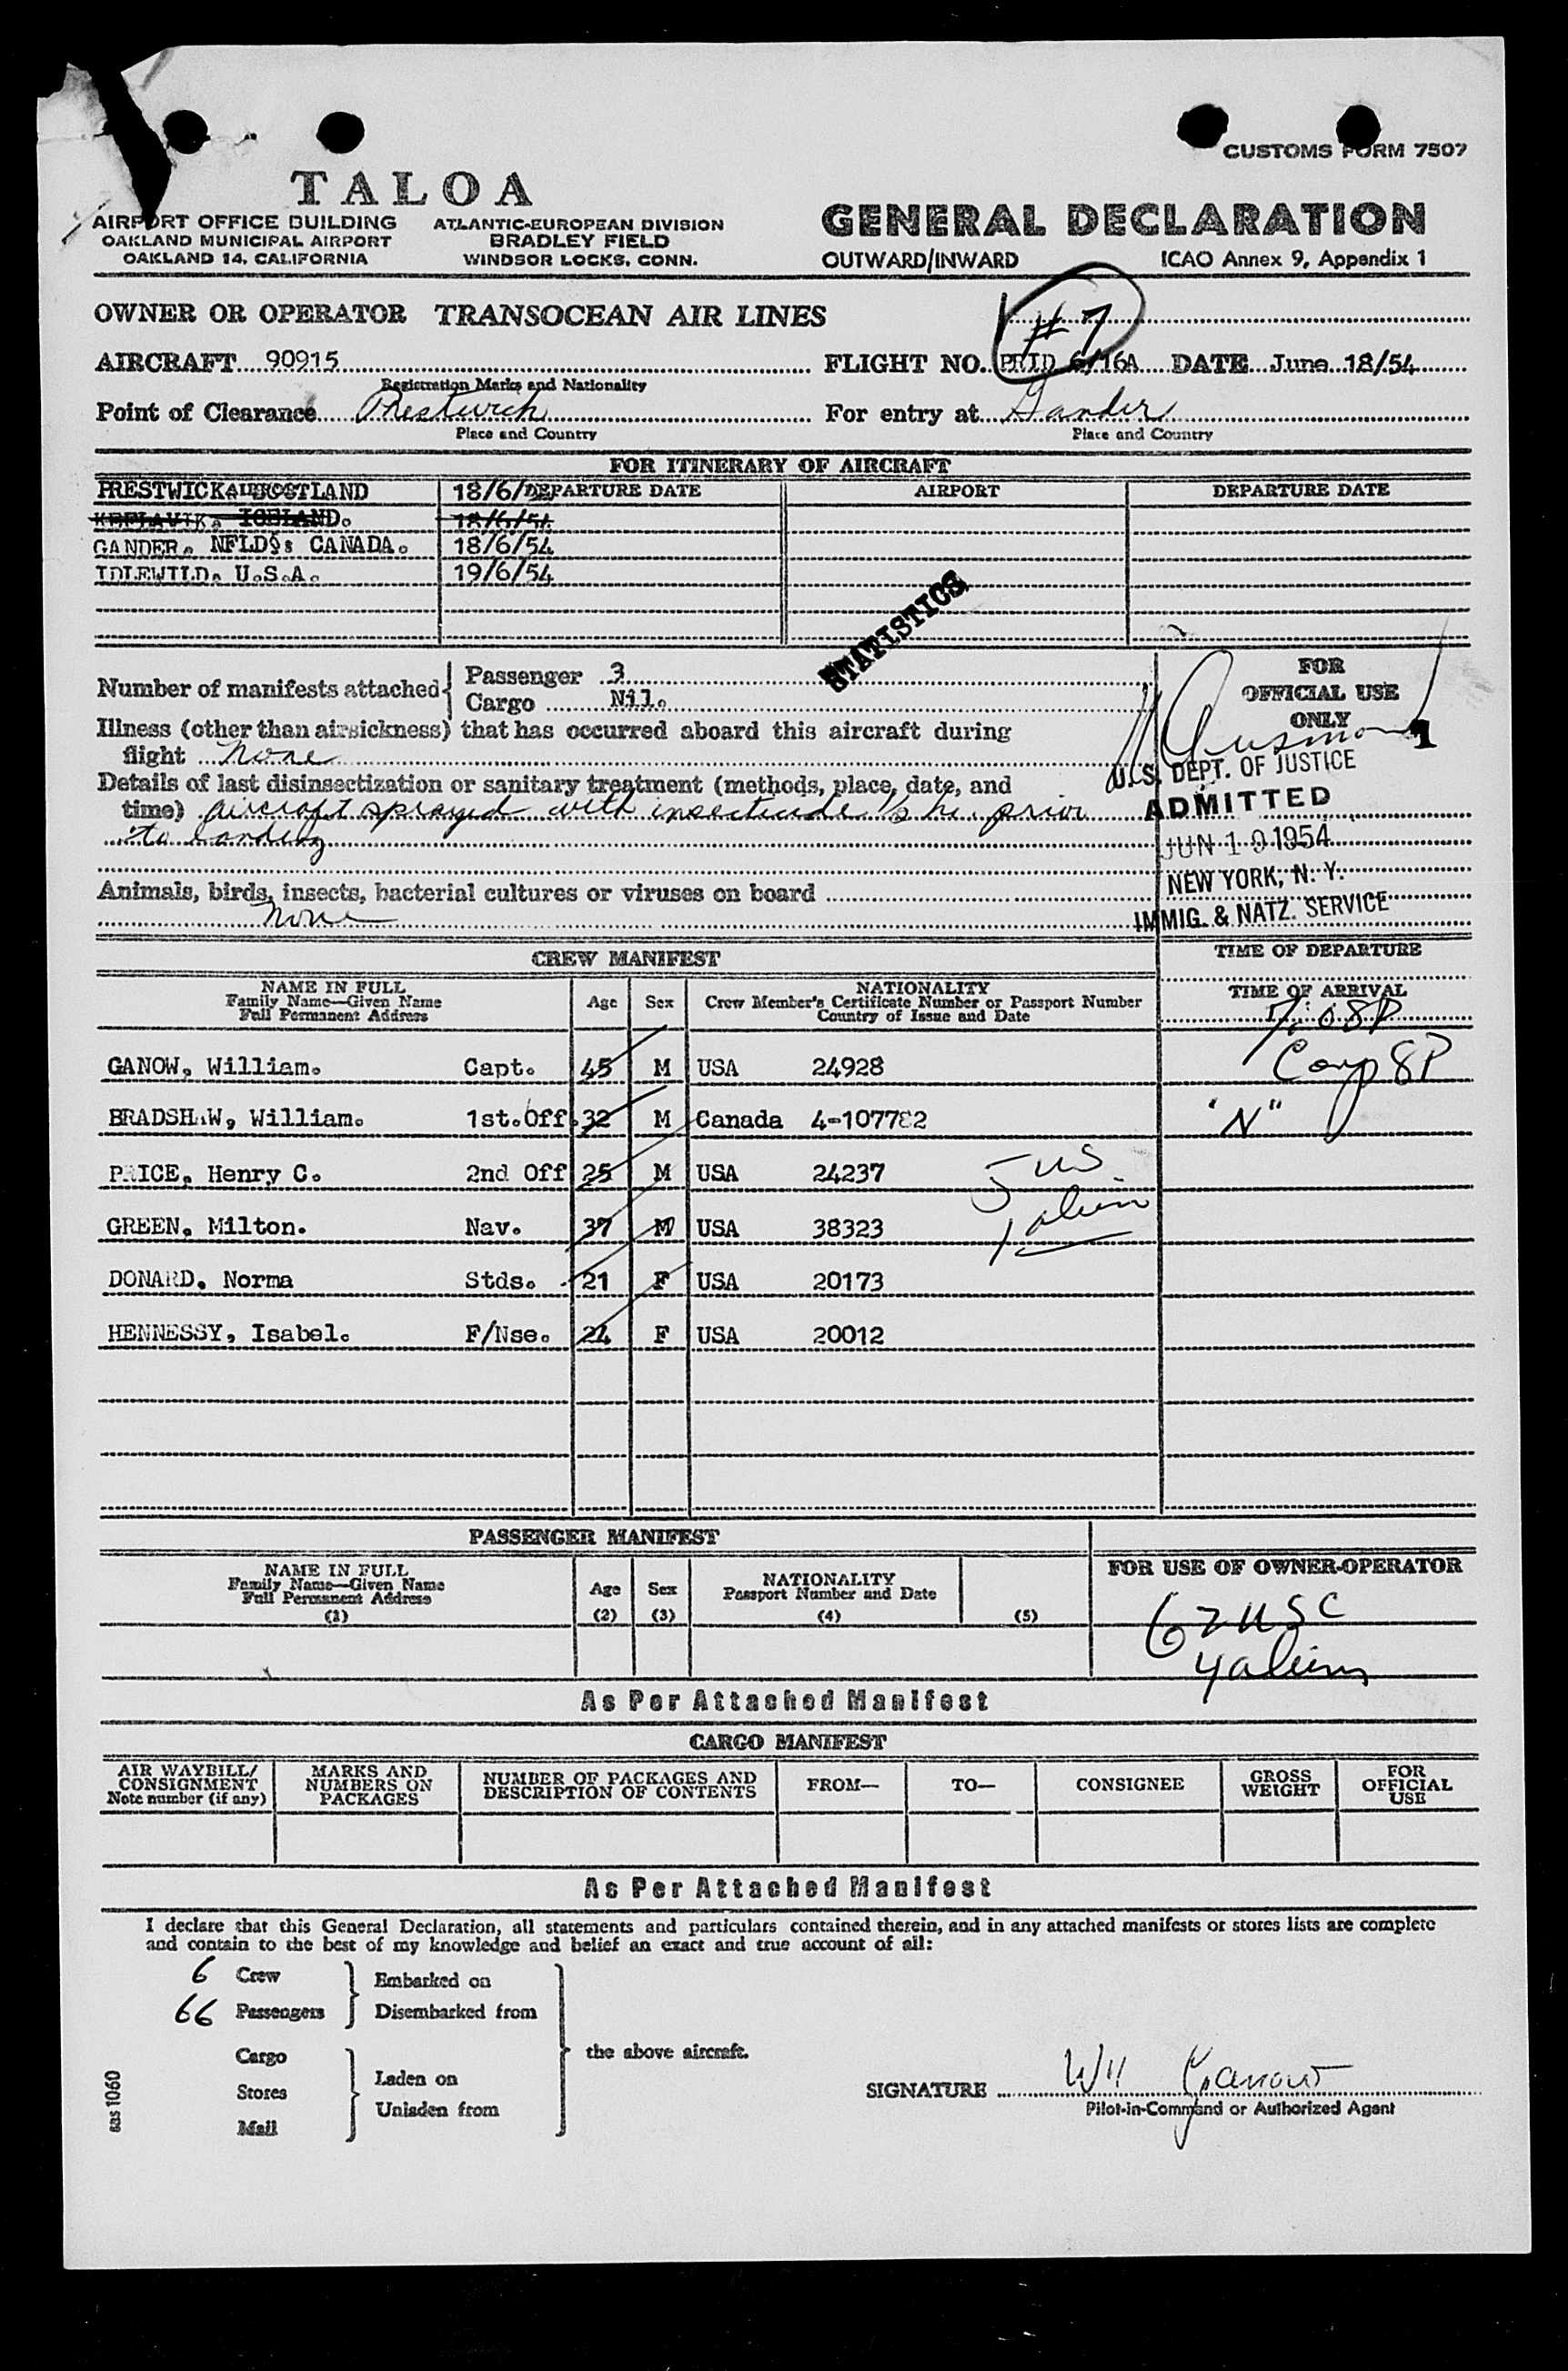 CUSTOMS FORM 7507
TALOA
AIRPORT OFFICE BUILDING
OAKLAND MUNICIPAL AIRPORT
OAKLAND 14, CALIFORNIA
ATLANTIC-EUROPEAN DIVISION
BRADLEY FIELD
WINDSOR LOCKS, CONN.
GENERAL DECLARATION
OUTWARD/INWARD ICAO Annex 9, Appendix 1
OWNER OR OPERATOR TRANSOCEAN AIR LINES
#7
AIRCRAFT 90915 FLIGHT NO. PRID 6/16A DATE June 18/54
Registration Marks and Nationality
Point of Clearance Prestwick For entry at Gander
Place and Country Place and Country
FOR ITINERARY OF AIRCRAFT
AIRPORT DEPARTURE DATE AIRPORT DEPARTURE DATE
PRESTWICK, SCOTLAND 18/6/54
KEFLAVIK, ICELAND. 18/6/54
GANDER, NFLD; CANADA. 18/6/54
IDLEWILD, U.S.A. 19/6/54
STATISTICS
Number of manifests attached
Passenger 3
Cargo Nil.
FOR
OFFICIAL USE
ONLY
1
Illness (other than airsickness) that has occurred aboard this aircraft during
flight None
Details of last disinsectization or sanitary treatment (methods, place, date, and
time) aircraft sprayed with insecticide 1/2 hr. prior
to landing
U.S. DEPT. OF JUSTICE
ADMITTED
JUN 19 1954
NEW YORK, N. Y.
IMMIG. & NATZ. SERVICE
Animals, birds, insects, bacterial cultures or viruses on board
None
CREW MANIFEST
TIME OF DEPARTURE
TIME OF ARRIVAL
7:08P
8P
"N"
NAME IN FULL
Family Name—Given Name
Full Permanent Address
Age Sex
NATIONALITY
Crew Member's Certificate Number or Passport Number
Country of Issue and Date
GANOW, William. Capt. 45 M USA 24928
BRADSHAW, William. 1st.Off. 32 M Canada 4-107782
PRICE, Henry C. 2nd Off 25 M USA 24237
5 US
GREEN, Milton. Nav. 37 M USA 38323
1 alien
DONARD, Norma Stds. 21 F USA 20173
HENNESSY, Isabel. F/Nse. 24 F USA 20012
PASSENGER MANIFEST
NAME IN FULL
Family Name—Given Name
Full Permanent Address
(1)
Age
(2)
Sex
(3)
NATIONALITY
Passport Number and Date
(4)
(5)
FOR USE OF OWNER-OPERATOR
62 USC
4 aliens
As Per Attached Manifest
CARGO MANIFEST
AIR WAYBILL/
CONSIGNMENT
Note number (if any)
MARKS AND
NUMBERS ON
PACKAGES
NUMBER OF PACKAGES AND
DESCRIPTION OF CONTENTS
FROM—
TO—
CONSIGNEE
GROSS
WEIGHT
FOR
OFFICIAL
USE
As Per Attached Manifest
I declare that this General Declaration, all statements and particulars contained therein, and in any attached manifests or stores lists are complete
and contain to the best of my knowledge and belief an exact and true account of all:
6 Crew
66 Passengers
Embarked on
Disembarked from
Cargo
Stores
Mail
Laden on
Unladen from
the above aircraft.
SIGNATURE Wm Ganow
Pilot-in-Command or Authorized Agent
sas 1060